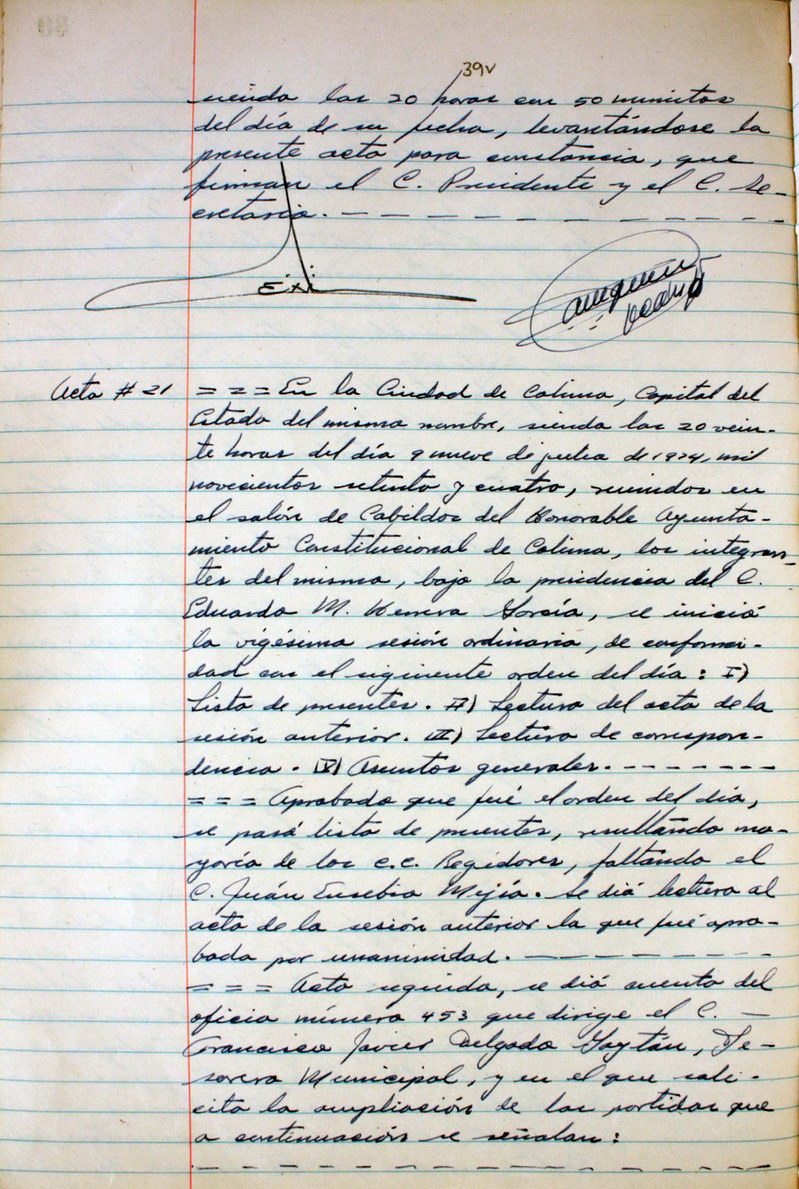 39v
siendo las 20 horas con 50 minutos
del día de su fecha, levantándose la
presente acta para constancia, que
firman el C. Presidente y el C. Se-
cretario. — — — — — — — — — —
Acta # 21
= = = En la Ciudad de Colima, Capital del
Estado del mismo nombre, siendo las 20 vein-
te horas del día 9 nueve de julio de 1974, mil
novecientos setenta y cuatro, reunidos en
el salón de Cabildos del Honorable Ayunta-
miento Constitucional de Colima, los integran-
tes del mismo, bajo la presidencia del C.
Eduardo M. Herrera García, se inició
la vigésima sesión ordinaria, de conformi-
dad con el siguiente orden del día: I)
Lista de presentes. II) Lectura del acta de la
sesión anterior. III) Lectura de correspon-
dencia. IV) Asuntos generales. - - - - - - -
= = = Aprobado que fué el orden del día,
se pasó lista de presentes, resultando ma-
yoría de los C.C. Regidores, faltando el
C. Juán Eusebio Mejía. Se dió lectura al
acta de la sesión anterior la que fué apro-
bada por unanimidad. — — — — — — — —
= = = Acto seguido, se dió cuenta del
oficio número 453 que dirige el C. —
Francisco Javier Delgado Gaytán, Te-
sorero Municipal, y en el que soli-
cita la ampliación de las partidas que
a continuación se señalan:
— — — — — — — — — — — — — — —